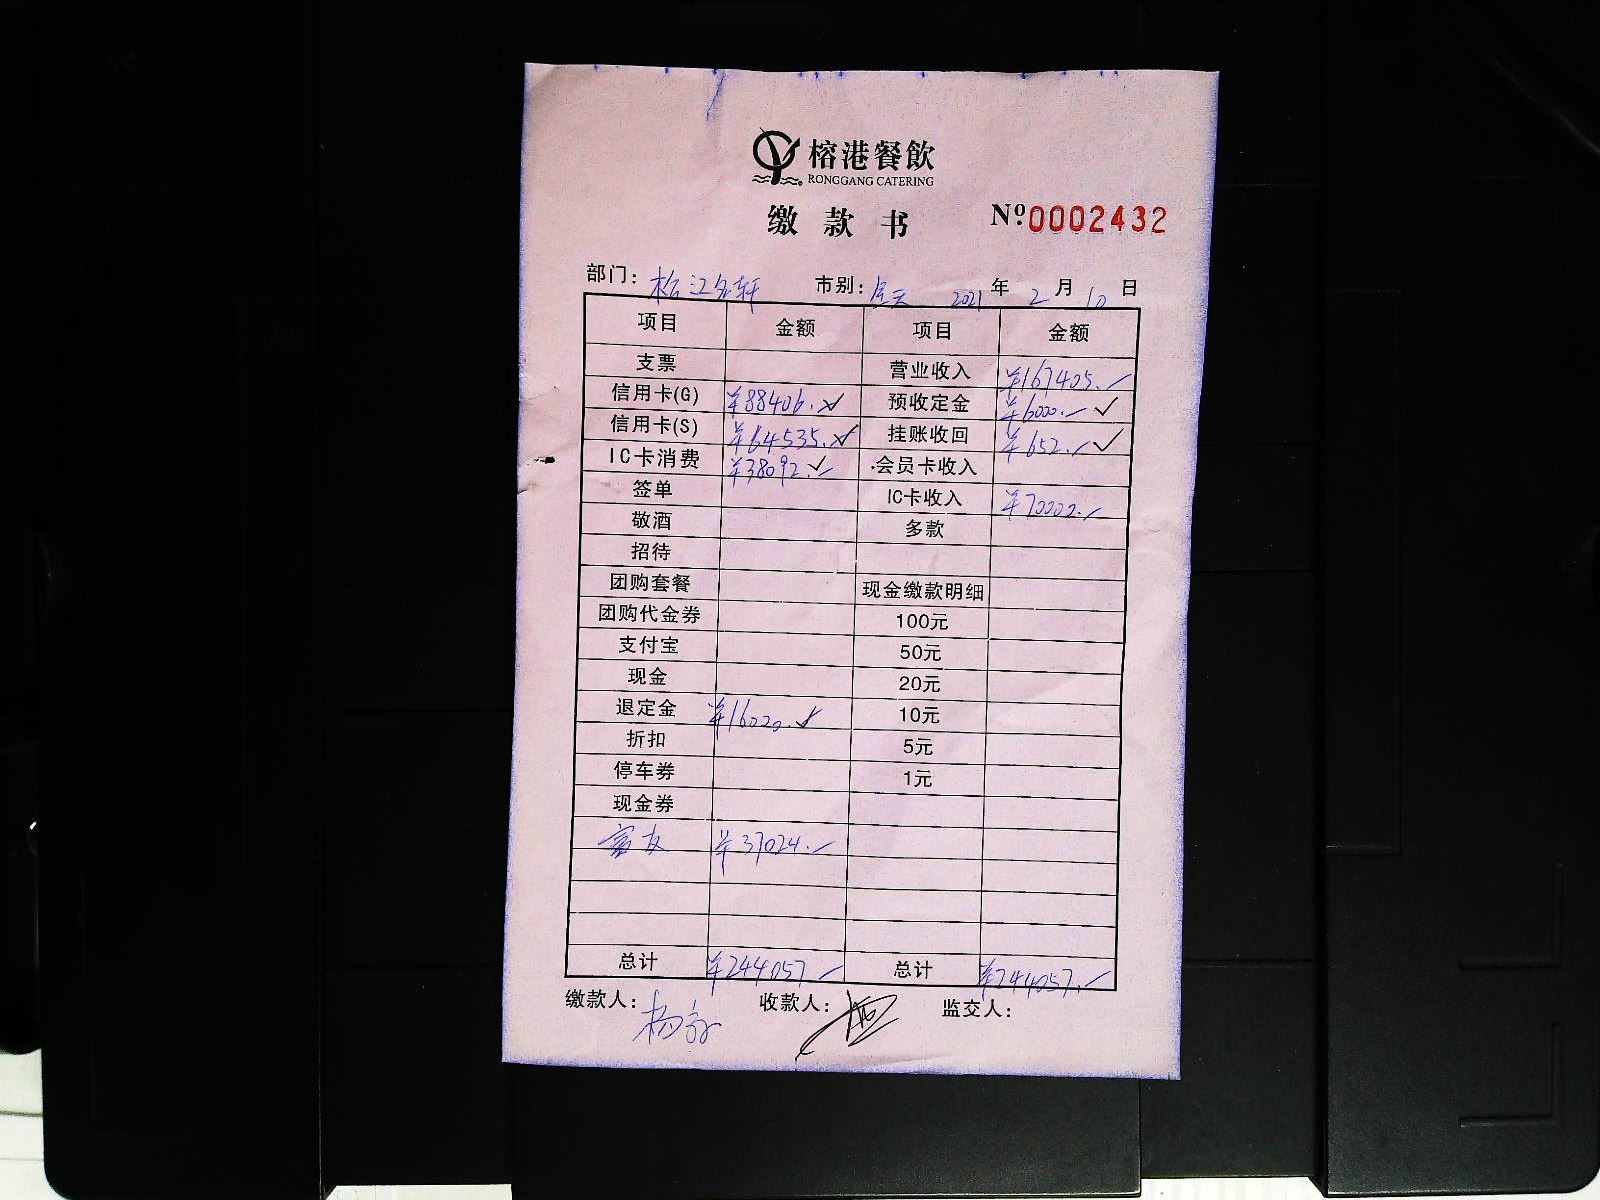 榕港餐飲
RONGGANG CATERING
缴款书 №0002432
部门: 松江名轩 市别: 全天 2021年2月10日
项目 金额 项目 金额
支票 营业收入 ¥167405.
信用卡(G) ¥88406. 预收定金 ¥6000.
信用卡(S) ¥64535. 挂账收回 ¥652.
IC卡消费 ¥38092. 会员卡收入
签单 IC卡收入 ¥70000.
敬酒 多款
招待
团购套餐 现金缴款明细
团购代金券 100元
支付宝 50元
现金 20元
退定金 ¥16000. 10元
折扣 5元
停车券 1元
现金券
富友 ¥37024.
总计 ¥244057 总计 ¥244057.
缴款人: 杨 收款人: 监交人: